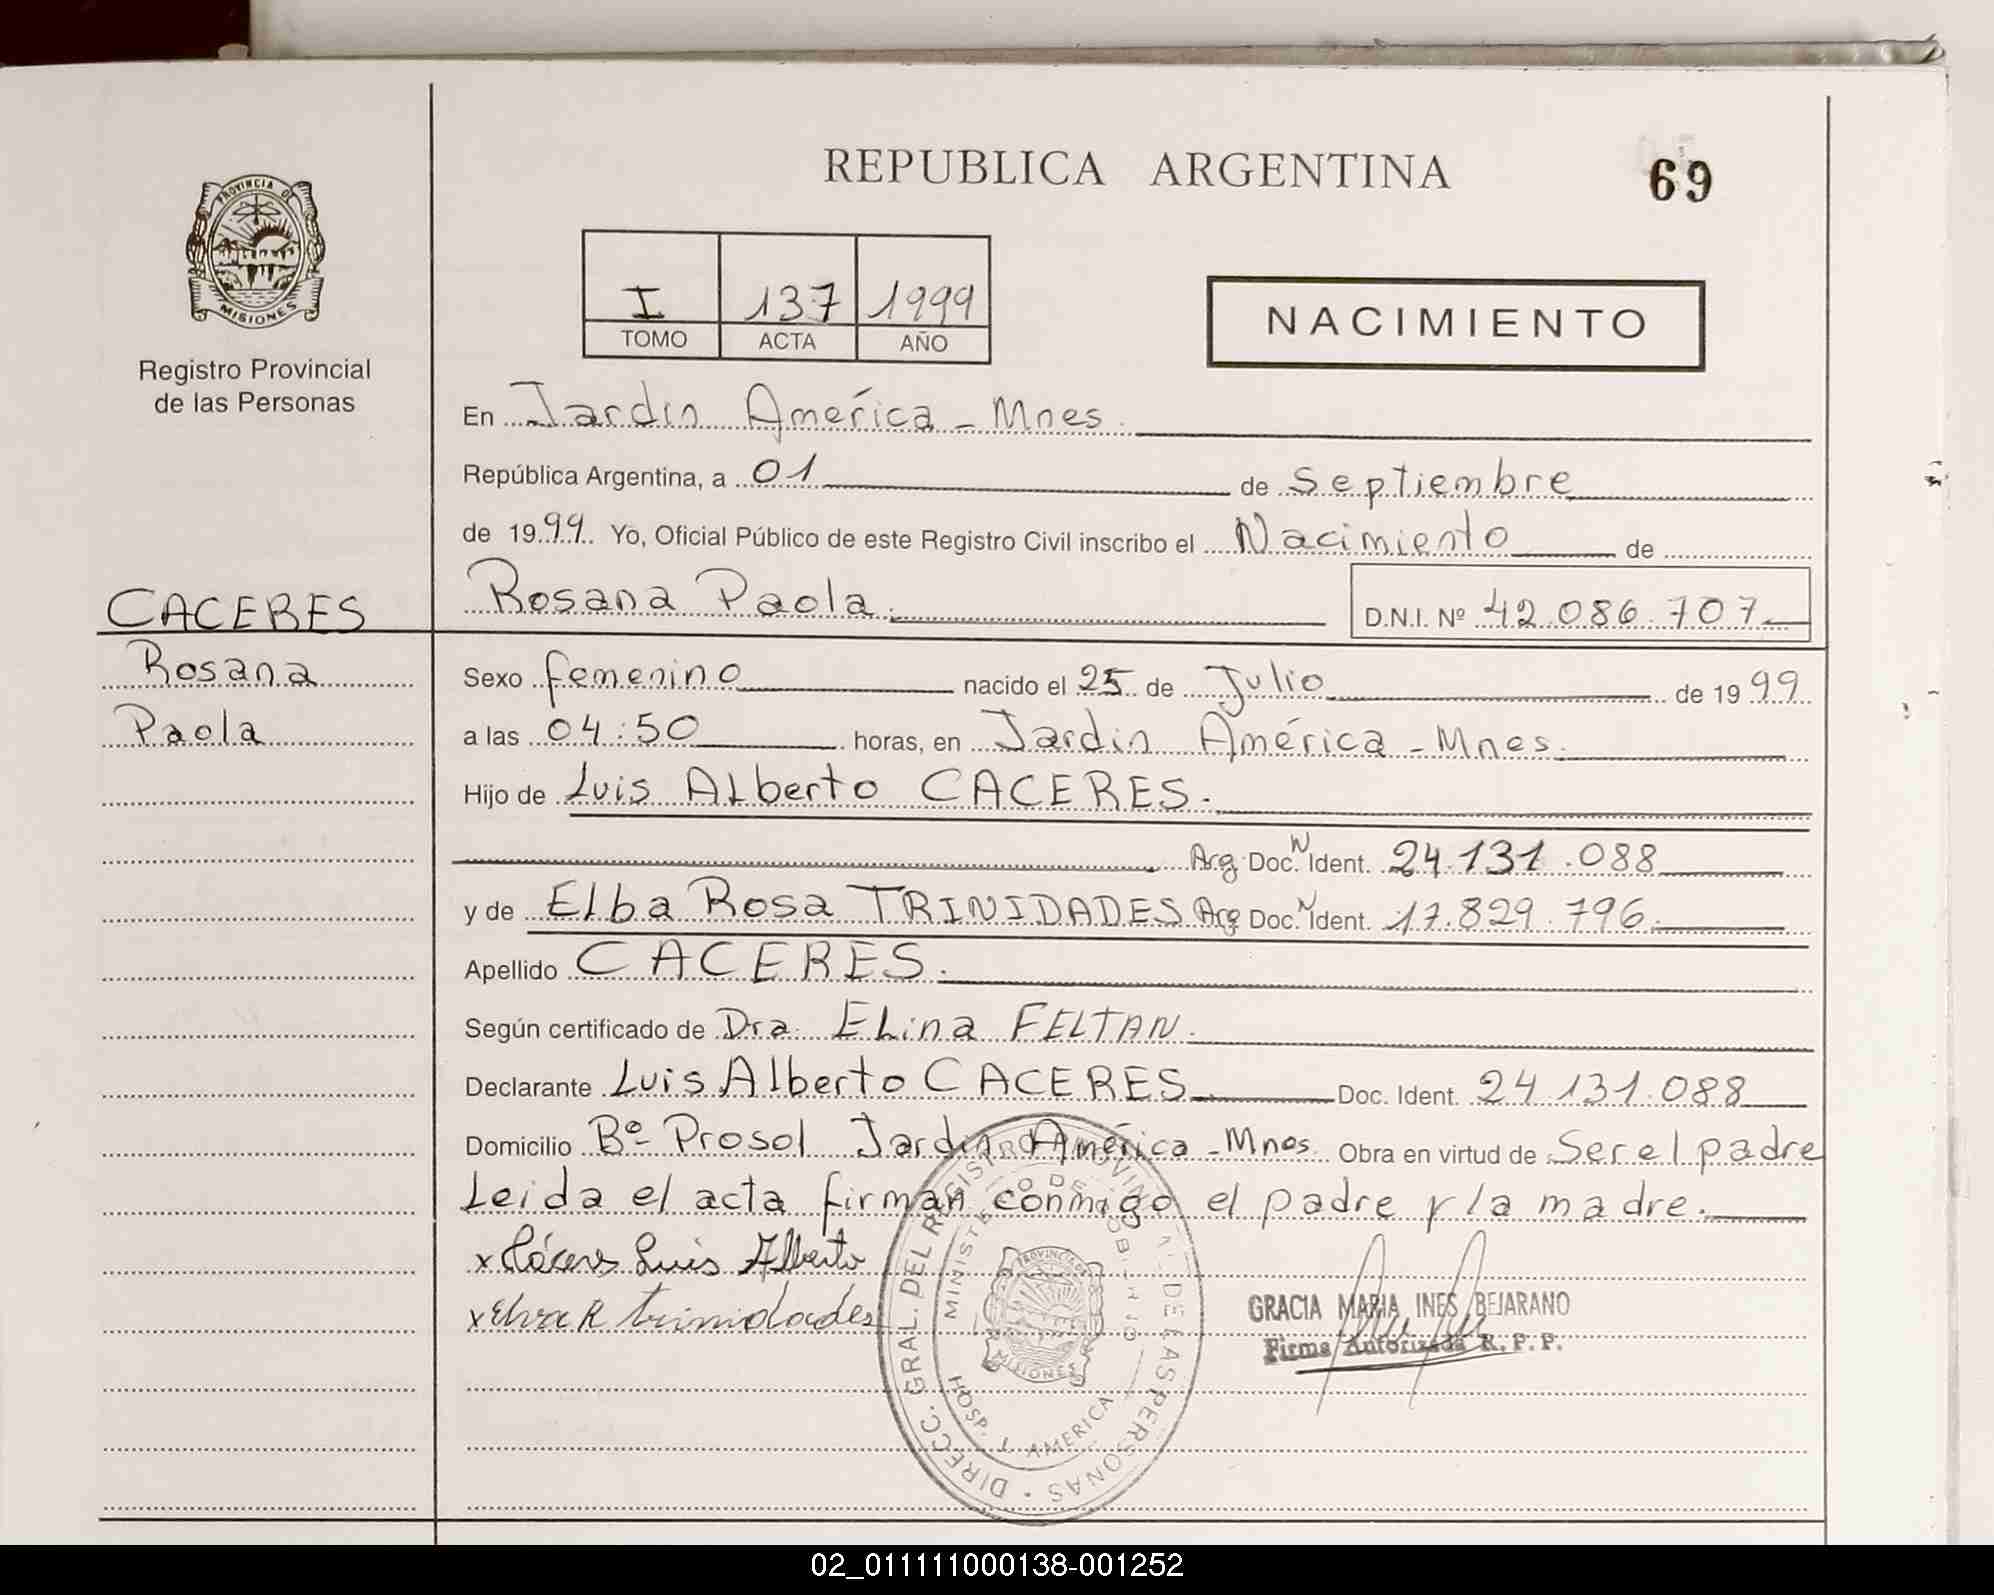 REPUBLICA ARGENTINA
69
PROVINCIA DE
MISIONES
Registro Provincial
de las Personas
I 137 1999
TOMO ACTA AÑO
NACIMIENTO
En Jardin América - Mnes.
República Argentina, a 01 de Septiembre
de 1999. Yo, Oficial Público de este Registro Civil inscribo el Nacimiento de
CACERES
Rosana
Paola
Rosana Paola. D.N.I. Nº 42.086.707
Sexo femenino nacido el 25 de Julio de 1999
a las 04:50 horas, en Jardin América - Mnes.
Hijo de Luis Alberto CACERES.
Arg Doc. N Ident. 24.131.088
y de Elba Rosa TRINIDADES Arg Doc. N Ident. 17.829.796.
Apellido CACERES.
Según certificado de Dra. Elina FELTAN.
Declarante Luis Alberto CACERES Doc. Ident. 24.131.088
Domicilio Bº Prosol Jardin América - Mnes. Obra en virtud de Ser el padre
Leida el acta firman conmigo el padre y la madre.
x Cáceres Luis Alberto
x Elva R trinidades
GRACIA MARIA INES BEJARANO
Firma Autorizada R. P. P.
DIRECC. GRAL. DEL REGISTRO PROVINCIAL DE LAS PERSONAS
MINISTERIO DE GOBIERNO
PROVINCIA
MISIONES
HOSP. J. AMERICA
02_011111000138-001252